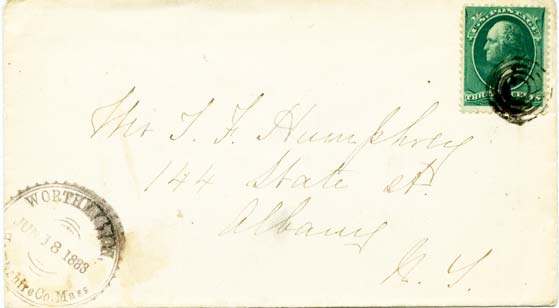 U.S. POSTAGE
THREE CENTS
Mr T. F. Humphrey
144 State st.
Albany
N. Y.
WORTHINGTON,
JUN 18 1883
Hampshire Co. Mass